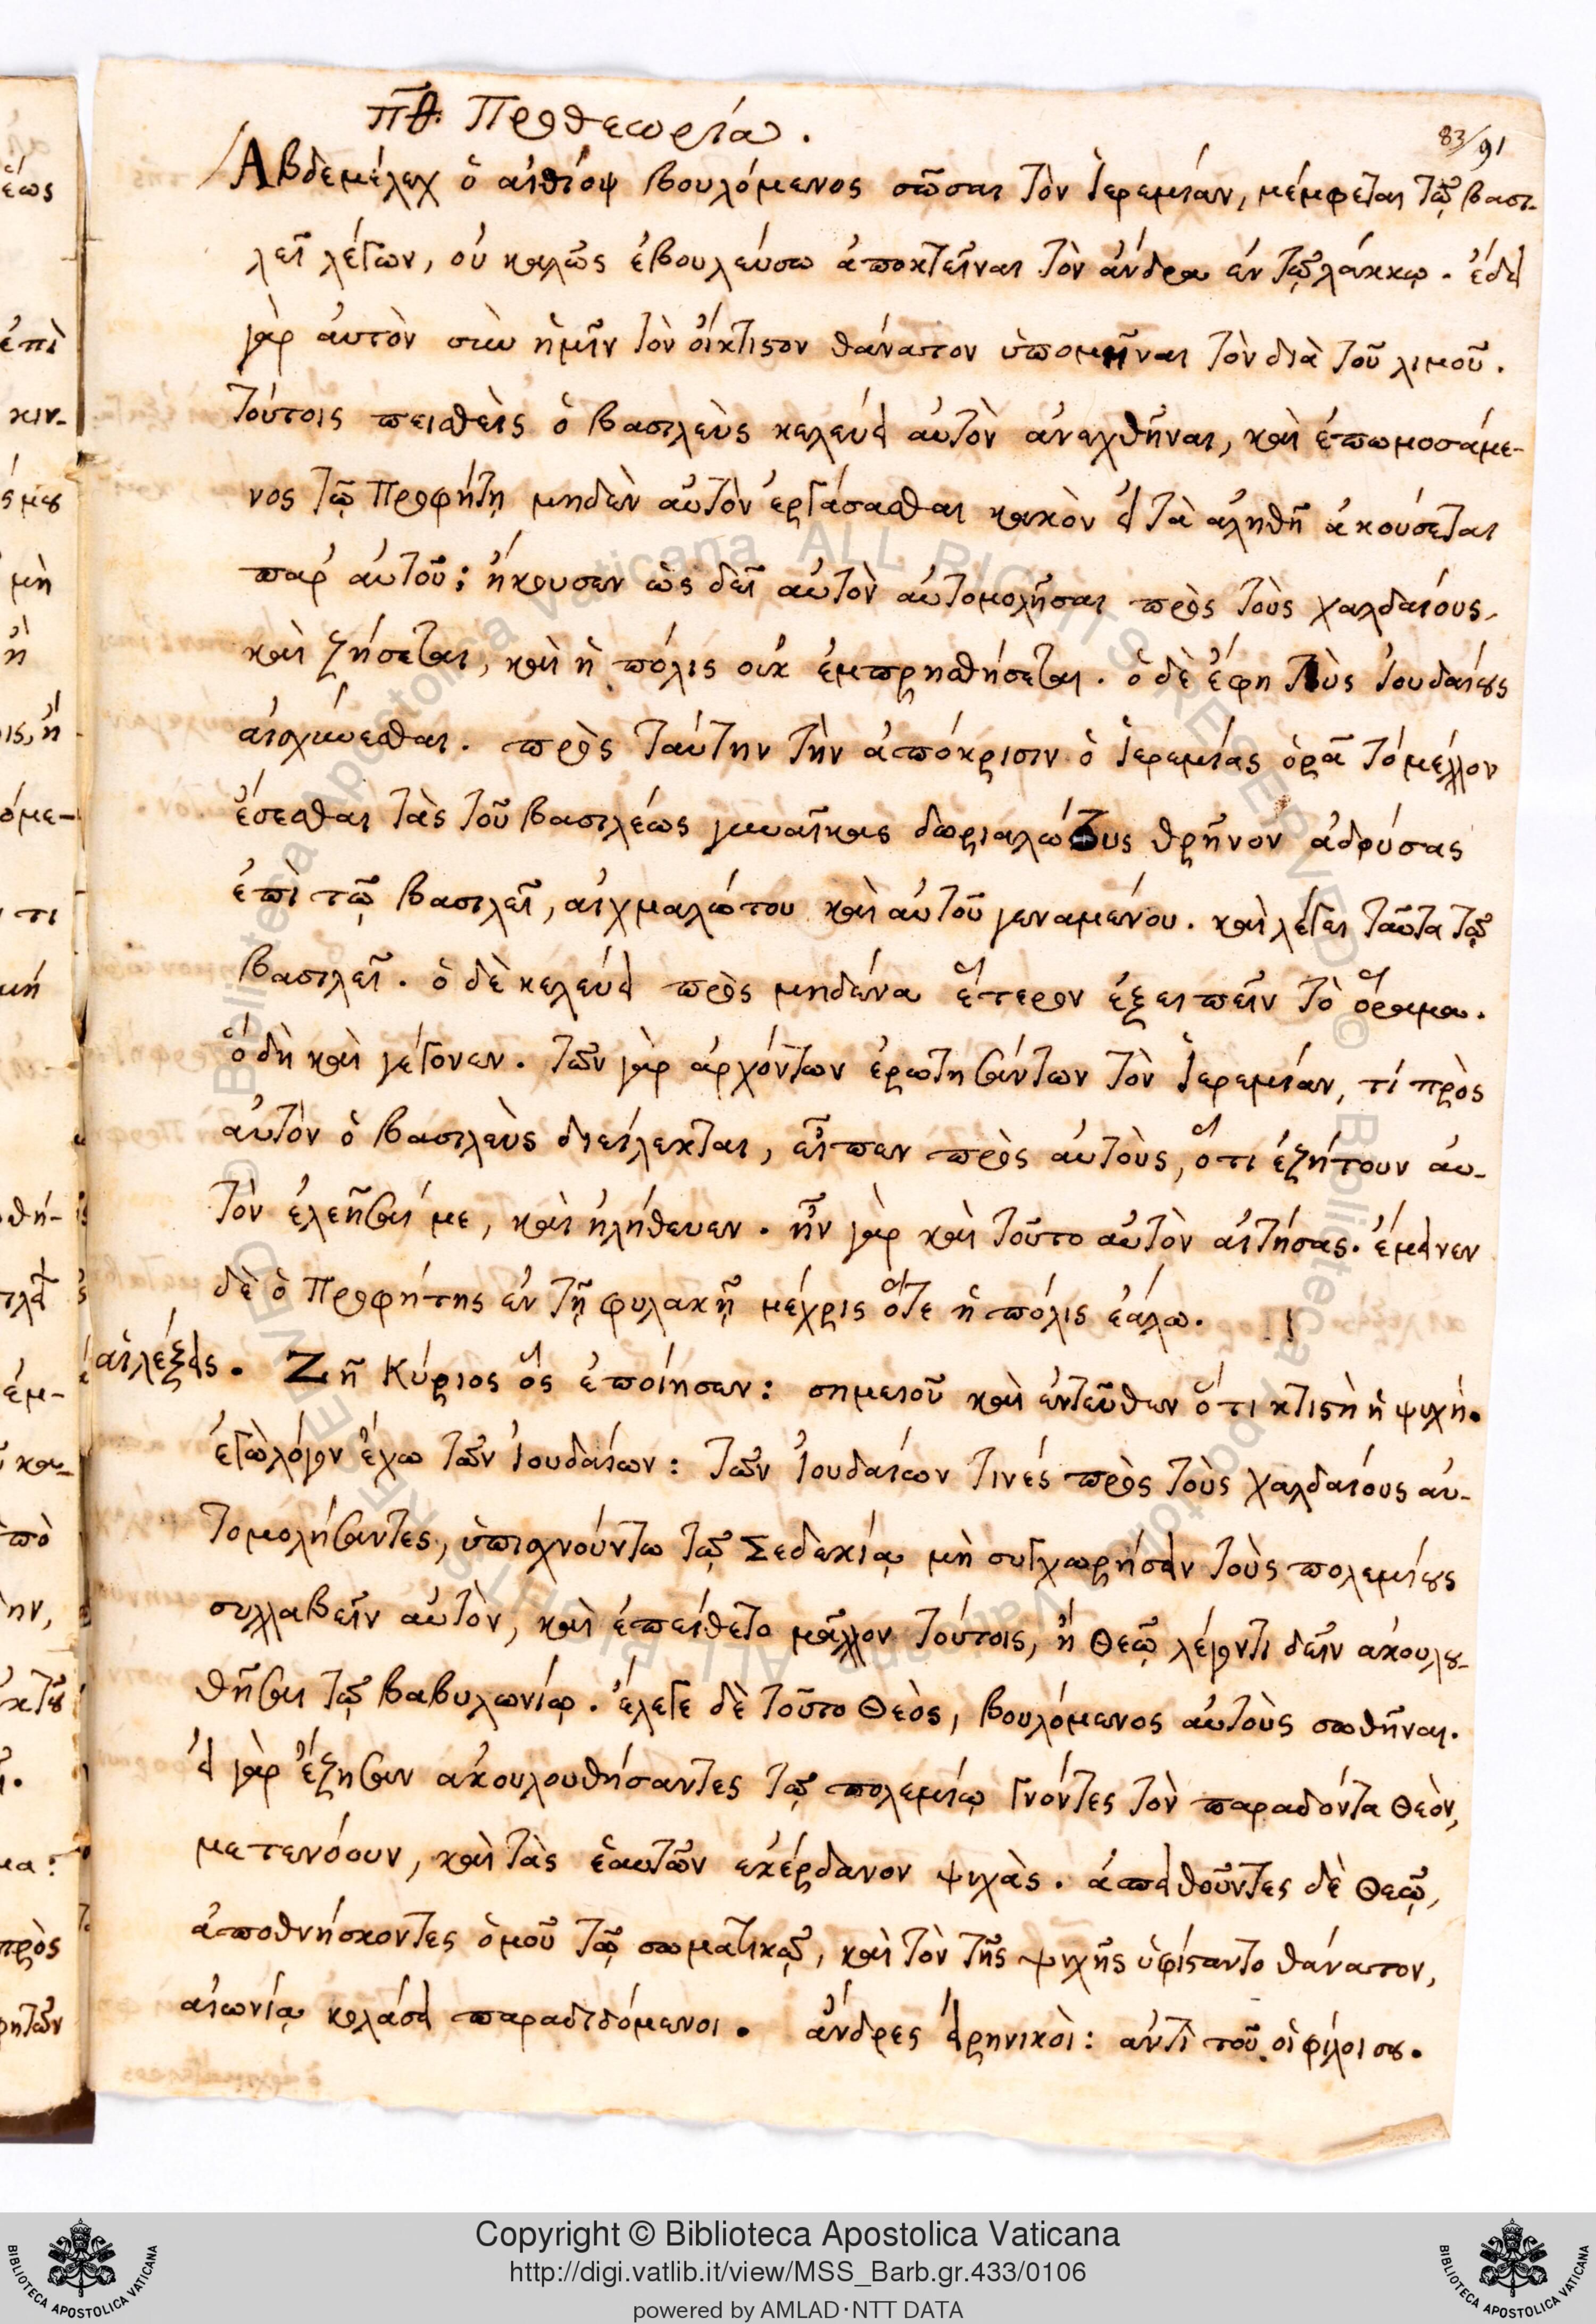 83/91
πθ. Προθεωρία.
Αβδεμέλεχ ὁ αἰθίοψ βουλόμενος σῶσαι τὸν Ἱερεμίαν, μέμφεται τῷ βασι-
λεῖ λέγων, οὐ καλῶς ἐβουλεύσω ἀποκτεῖναι τὸν ἄνδρα ἐν τῷ λάκκῳ. ἔδει
γὰρ αὐτὸν σὺν ἡμῖν τὸν οἴκτιστον θάνατον ὑπομεῖναι τὸν διὰ τοῦ λιμοῦ.
τούτοις πεισθεὶς ὁ βασιλεὺς κελεύει αὐτὸν ἀναχθῆναι, καὶ ἐπωμοσάμε-
νος τῷ Προφήτῃ μηδὲν αὐτὸν ἐργάσασθαι κακὸν εἰ τὰ ἀληθῆ ἀκούσεται
παρ' αὐτοῦ: ἤκουσεν ὡς δεῖ αὐτὸν αὐτομολῆσαι πρὸς τοὺς χαλδαίους,
καὶ ζήσεται, καὶ ἡ πόλις οὐκ ἐμπρησθήσεται. ὁ δὲ ἔφη τοὺς Ἰουδαίους
αἰσχύνεσθαι. πρὸς ταύτην τὴν ἀπόκρισιν ὁ Ἱερεμίας ὁρᾷ τὸ μέλλον
ἔσεσθαι τὰς τοῦ βασιλέως γυναῖκας δωριαλώτους θρῆνον ἀδούσας
ἐπὶ τῷ βασιλεῖ, αἰχμαλώτου καὶ αὐτοῦ γεναμένου. καὶ λέγει ταῦτα τῷ
βασιλεῖ. ὁ δὲ κελεύει πρὸς μηδένα ἕτερον ἐξειπεῖν τὸ ὅραμα.
ὃ δὴ καὶ γέγονεν. τῶν γὰρ ἀρχόντων ἐρωτησάντων τὸν Ἱερεμίαν, τί πρὸς
αὐτὸν ὁ βασιλεὺς διείλεκται, εἶπεν πρὸς αὐτοὺς, ὅτι ἐζήτουν αὐ-
τὸν ἐλεῆσαί με, καὶ ἠλήθευεν. ἦν γὰρ καὶ τοῦτο αὐτὸν αἰτήσας. ἔμεινεν
δὲ ὁ Προφήτης ἐν τῇ φυλακῇ μέχρις ὅτε ἡ πόλις ἑάλω.
αἱ λέξεις. Ζῆ Κύριος ὃς ἐποίησεν: σημειοῦ καὶ ἐντεῦθεν ὅτι κτιστὴ ἡ ψυχή.
ἐγὼ λόγον ἔχω τῶν Ἰουδαίων: τῶν Ἰουδαίων τινές πρὸς τοὺς χαλδαίους αὐ-
τομολήσαντες, ὑπισχνούντω τῷ Σεδεκίᾳ μὴ συγχωρήσειν τοὺς πολεμίους
συλλαβεῖν αὐτὸν, καὶ ἐπείθετο μᾶλλον τούτοις, ἢ Θεῷ λέγοντι δεῖν ἀκουλου-
θῆσαι τῷ βαβυλωνίῳ. ἔλεγε δὲ τοῦτο Θεὸς, βουλόμενος αὐτοὺς σωθῆναι.
εἰ γὰρ ἔζησαν ἀκουλουθήσαντες τῷ πολεμίῳ γνόντες τὸν παραδόντα Θεὸν,
μετενόουν, καὶ τὰς ἑαυτῶν ἐκέρδανον ψυχὰς. ἀπειθοῦντες δὲ Θεῷ,
ἀποθνήσκοντες ὁμοῦ τῷ σωματικῷ, καὶ τὸν τῆς ψυχῆς ὑφίσταντο θάνατον,
αἰωνίᾳ κολάσει παραδιδόμενοι. ἄνδρες εἰρηνικοὶ: ἀντὶ τοῦ οἱ φίλοι σου.
Copyright © Biblioteca Apostolica Vaticana
http://digi.vatlib.it/view/MSS_Barb.gr.433/0106
powered by AMLAD·NTT DATA